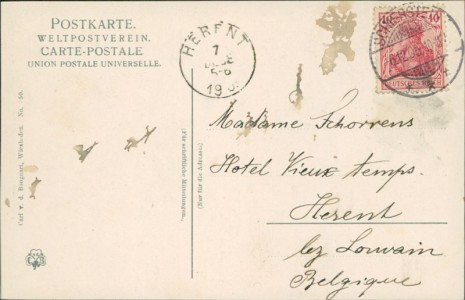 POSTKARTE.
WELTPOSTVEREIN.
CARTE-POSTALE
UNION POSTALE UNIVERSELLE.
HERENT
7
5-6
19
10
DEUTSCHES REICH
Madame Schorrens
Hotel Vieux temps.
Herent
lez Louvain
Belgique
(Für schriftliche Mitteilungen.)
(Nur für die Adresse.)
Carl v. d. Boogaart, Wiesbaden. No.